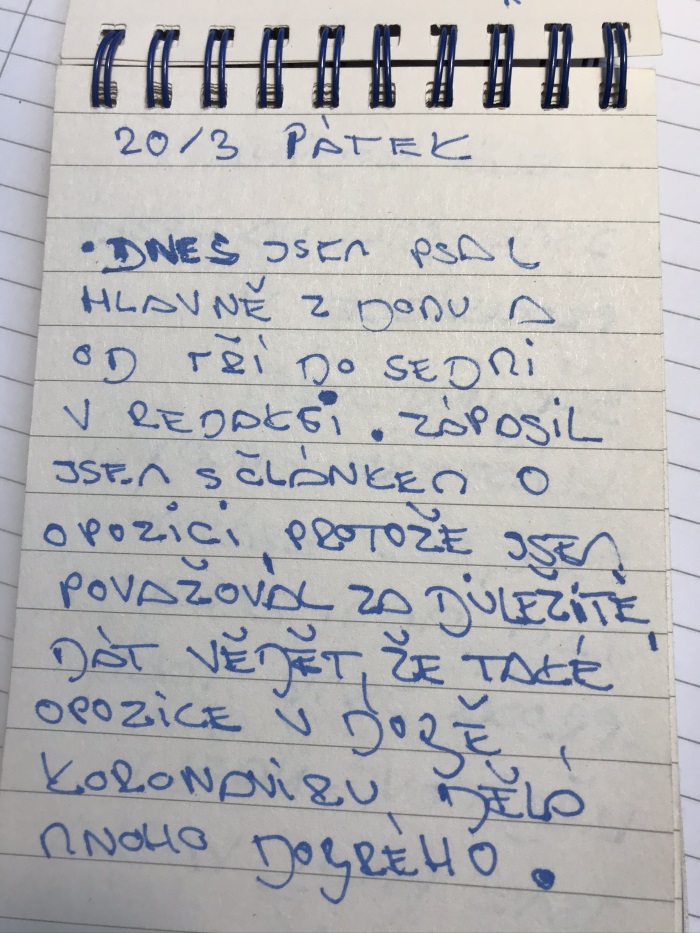 20/3 PÁTEK
• DNES JSEM PSAL
HLAVNĚ Z DOMU A
OD TŘÍ DO SEDMI
V REDAKCI. ZÁPASIL
JSEM S ČLÁNKEM O
OPOZICI, PROTOŽE JSEM
POVAŽOVAL ZA DŮLEŽITÉ,
DÁT VĚDĚT, ŽE TAKÉ
OPOZICE V DOBĚ
KORONAVIRU DĚLÁ
MNOHO DOBRÉHO.